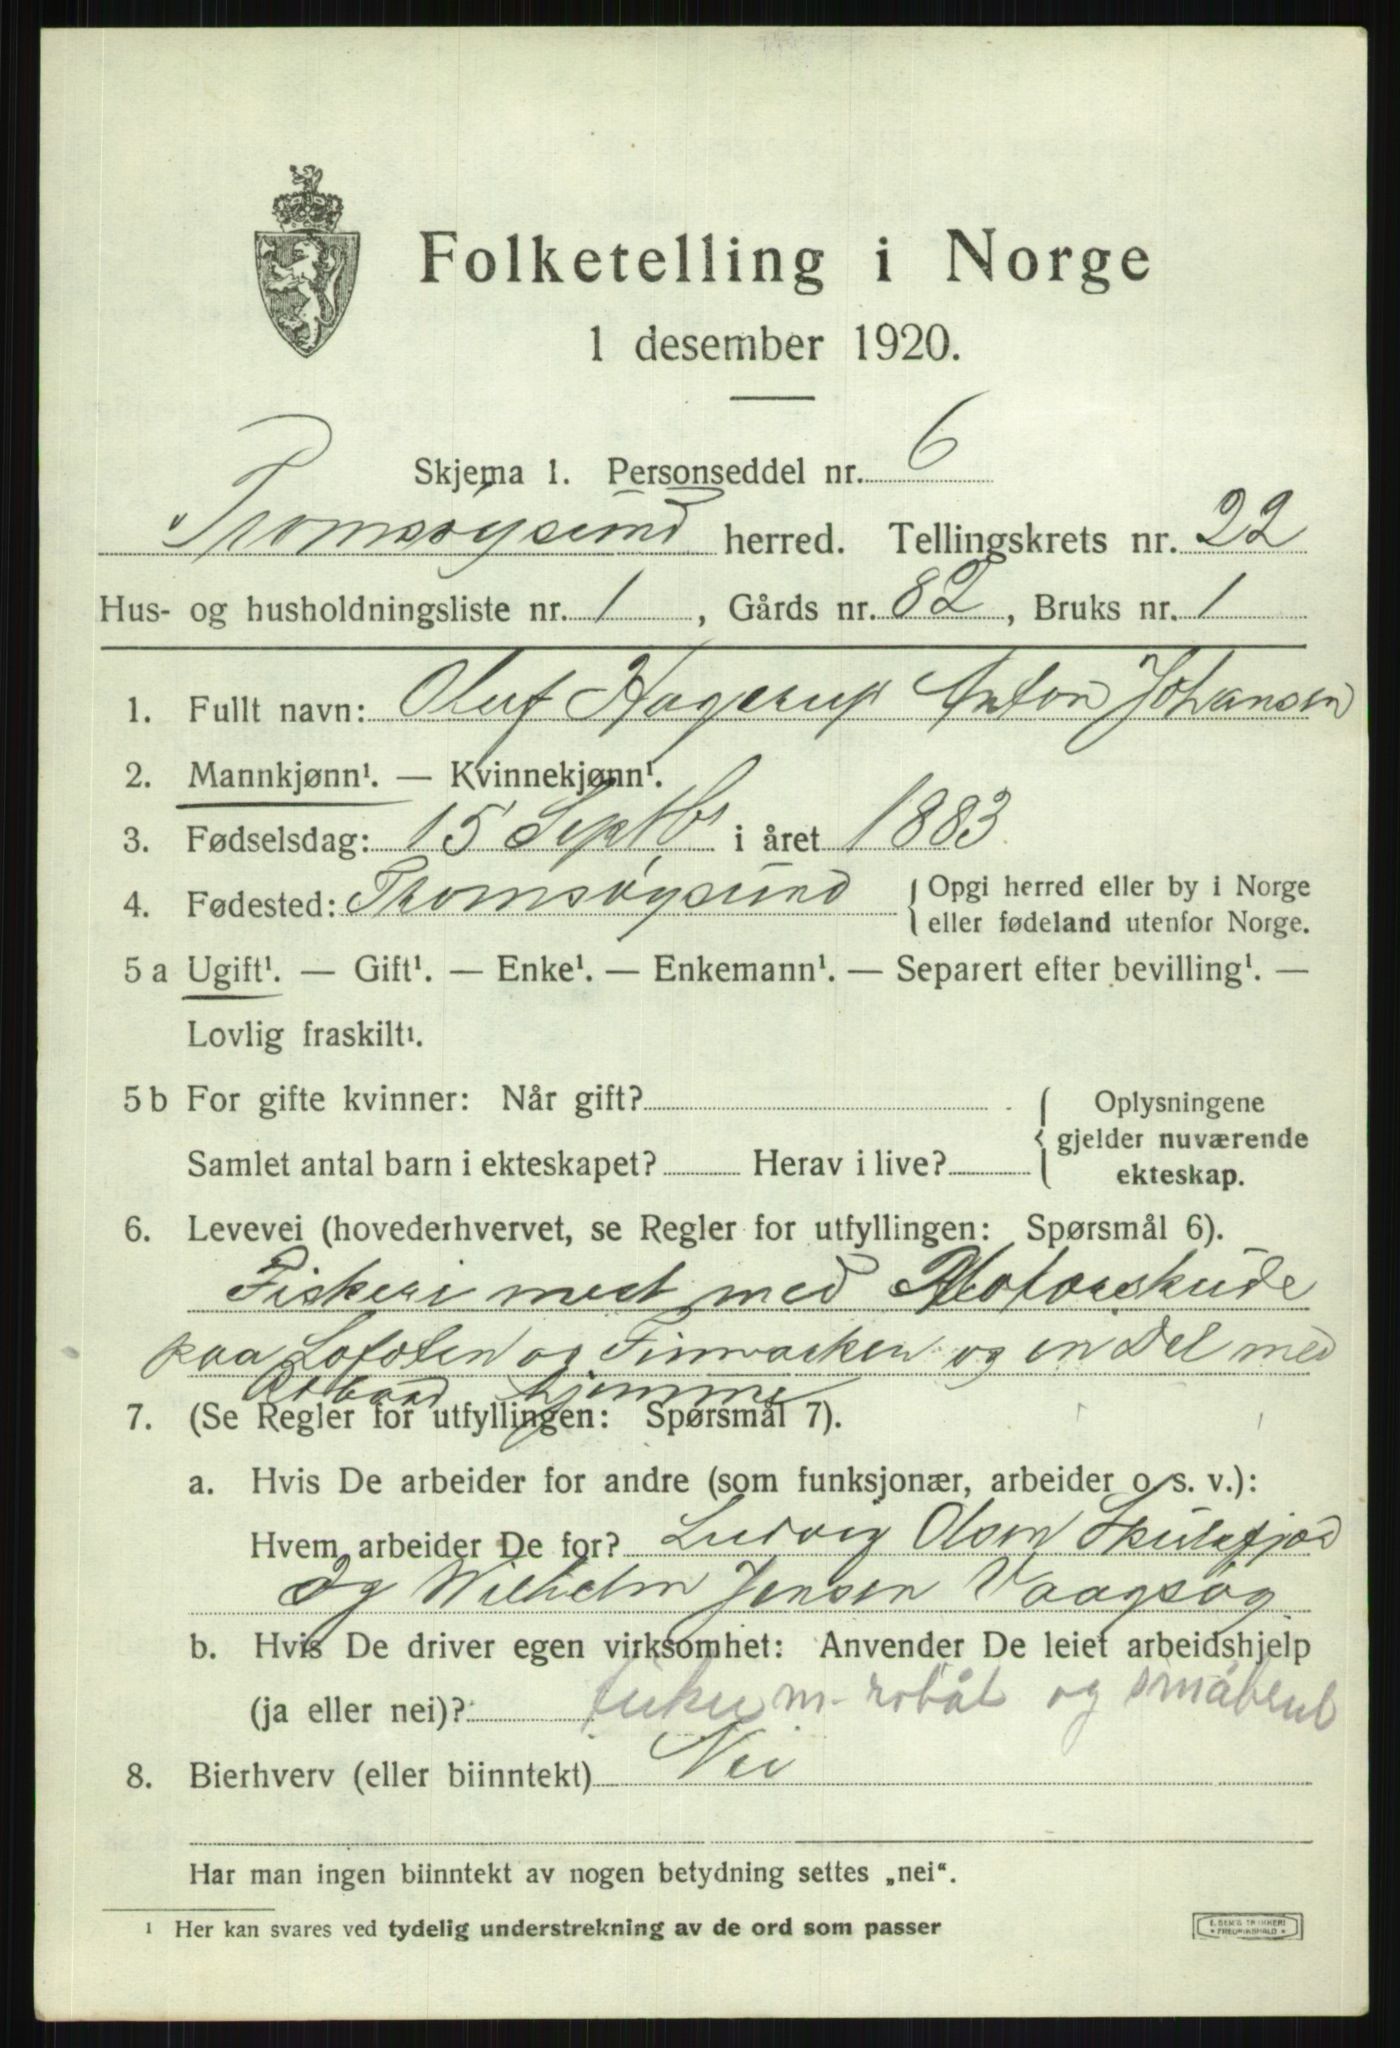 Folketelling i Norge
1 desember 1920.
Skjema 1. Personseddel nr. 6
Tromsøysund herred. Tellingskrets nr. 22
Hus- og husholdningsliste nr. 1, Gårds nr. 82, Bruks nr. 1
1. Fullt navn: Oluf Hagerup Anton Johansen
2. Mannkjønn¹. — Kvinnekjønn¹.
3. Fødselsdag: 15 Septbr i året 1883
4. Fødested: Tromsøysund { Opgi herred eller by i Norge
eller fødeland utenfor Norge.
5 a Ugift¹. — Gift¹. — Enke¹. — Enkemann¹. — Separert efter bevilling¹. —
Lovlig fraskilt¹.
5 b For gifte kvinner: Når gift? { Oplysningene
gjelder nuværende
Samlet antal barn i ekteskapet? Herav i live? ekteskap.
6. Levevei (hovederhvervet, se Regler for utfyllingen: Spørsmål 6).
Fiskeri mest med Motorskude
paa Lofoten og Finmarken og en Del med
Robaad hjemme
7. (Se Regler for utfyllingen: Spørsmål 7).
a. Hvis De arbeider for andre (som funksjonær, arbeider o. s. v.):
Hvem arbeider De for? Ludvig Olsen Skulsfjord
og Wilhelm Jensen Vaagsøg
b. Hvis De driver egen virksomhet: Anvender De leiet arbeidshjelp
(ja eller nei)? fisker m. robåt og småbruk
8. Bierhverv (eller biinntekt) Nei
Har man ingen biinntekt av nogen betydning settes „nei“.
¹ Her kan svares ved tydelig understrekning av de ord som passer